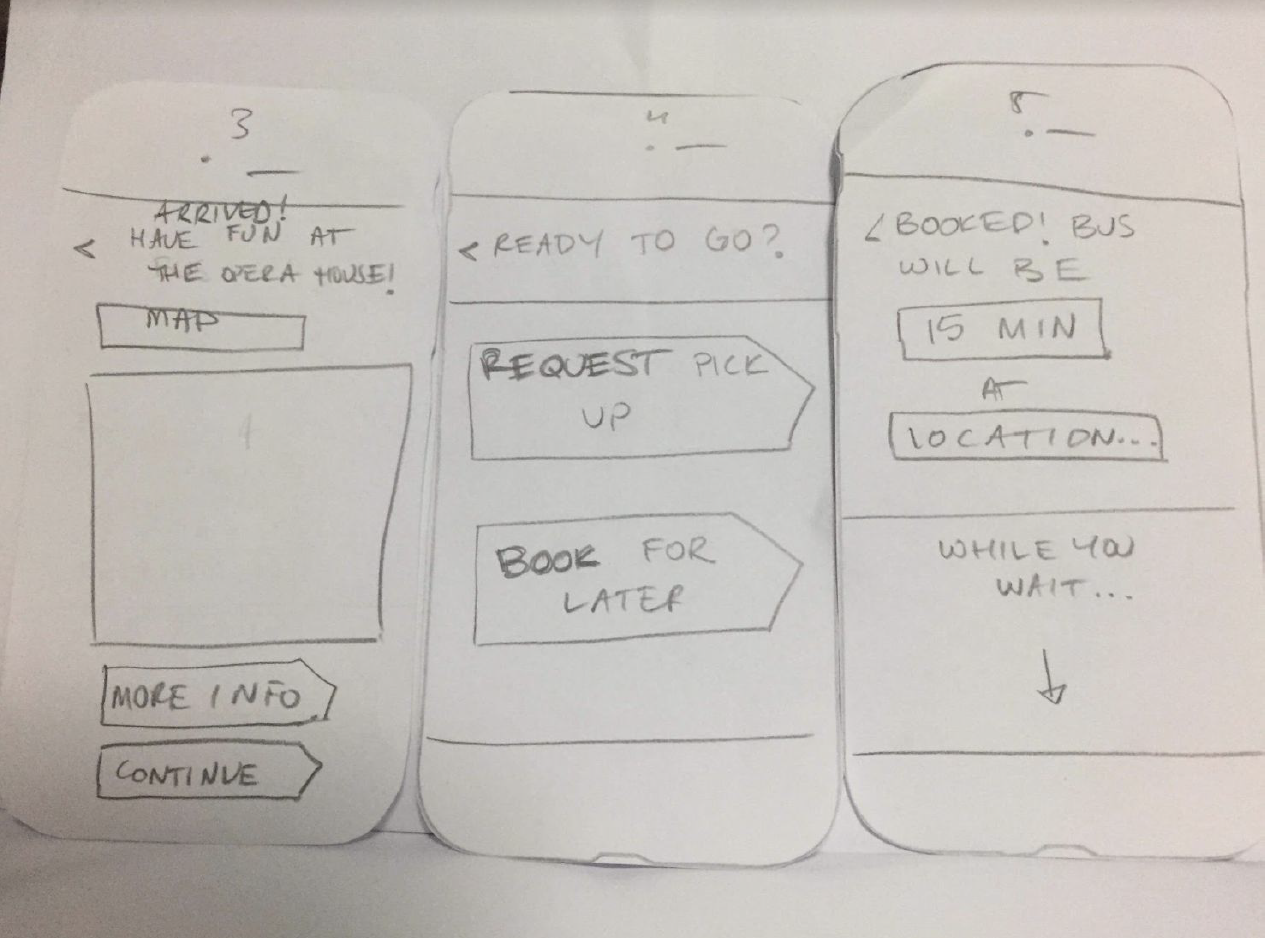 3
ARRIVED!
< HAVE FUN AT
THE OPERA HOUSE!
MAP
MORE INFO
CONTINUE
4
< READY TO GO?
REQUEST PICK
UP
BOOK FOR
LATER
< BOOKED! BUS
WILL BE
15 MIN
AT
LOCATION...
WHILE YOU
WAIT...